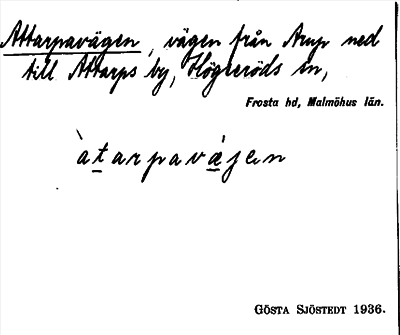 Attarpavägen, vägen från Arup ned
till Attarps by, Högseröds sn,
Frosta hd, Malmöhus län.
àtarpavä̀jen
GÖSTA SJÖSTEDT 1936.